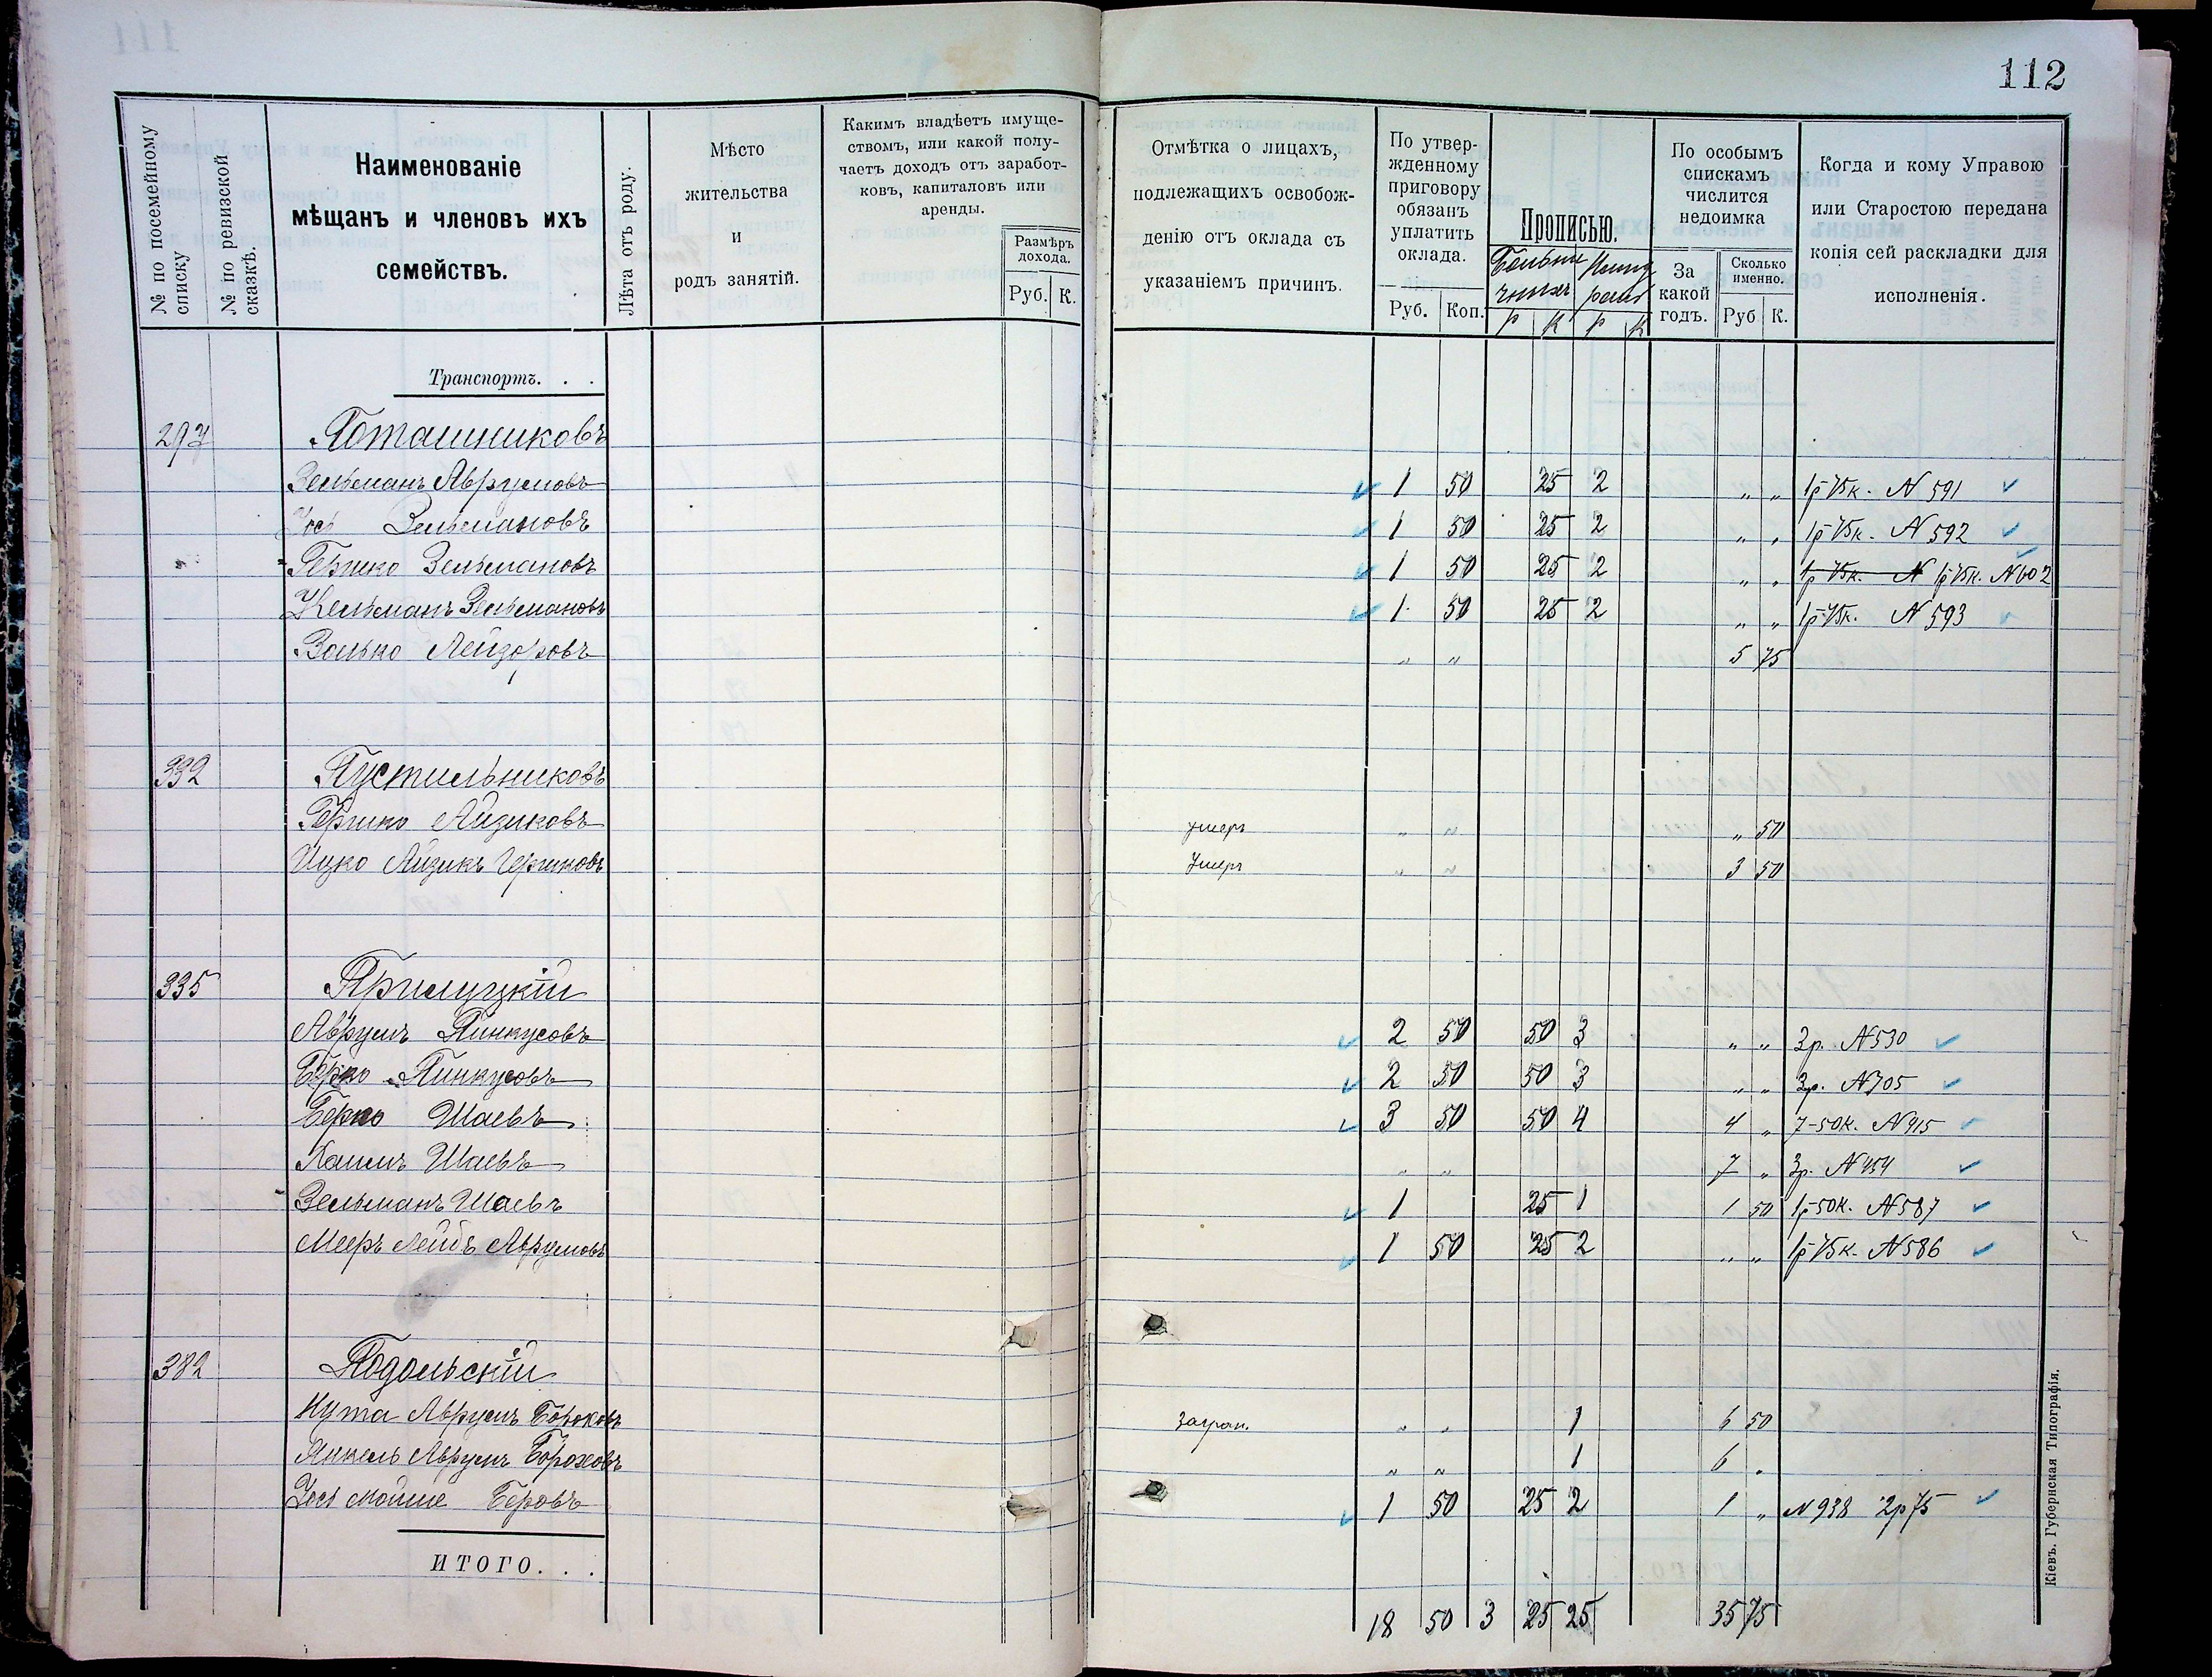 112
№ по посемейному списку
№ по ревизской сказкѣ.
Наименованіе
мѣщанъ и членовъ ихъ
семействъ.
Лѣта отъ роду.
Мѣсто
жительства
и
родъ занятій.
Какимъ владѣетъ имуще-
ствомъ, или какой полу-
чаетъ доходъ отъ заработ-
ковъ, капиталовъ или
аренды.
Размѣръ
дохода.
Руб. К.
Отмѣтка о лицахъ,
подлежащихъ освобож-
денію отъ оклада съ
указаніемъ причинъ.
По утвер-
жденному
приговору
обязанъ
уплатить
оклада.
Руб. Коп.
Прописью.
Больни
чныхъ
Р К Р К
По особымъ
спискамъ
числится
недоимка
За
какой
годъ.
Сколько
именно.
Руб К.
Когда и кому Управою
или Старостою передана
копія сей раскладки для
исполненія.
Транспортъ. . .
297 Поташниковъ
Зельманъ Аврумовъ 1 50 25 2 „ „ 1р 75к. N 591
Іось Зельмановъ 1 50 25 2 „ „ 1р 75к. N 592
Гершко Зельмановъ 1 50 25 2 „ „ 1р 75к. N 1р 75к. N 602
Кельманъ Зельмановъ 1 50 25 2 „ „ 1р 75к. N 593
Волько Лейзоровъ „ „ 5 75
332 Пустильниковъ
Гершко Айзиковъ умеръ „ „ „ 50
Ицко Айзикъ Гершковъ Умеръ „ „ 3 50
335 Прилуцкій
Аврумъ Пинкусовъ 2 50 50 3 „ „ 3р. N 530
Берко Пинкусовъ 2 50 50 3 „ „ 3р. N 705
Берко Шаевъ 3 50 50 4 4 „ 7-50к. N 915
Шаевъ „ „ 7 „ 3р. N 454
Зельманъ Шаевъ 1 25 1 1 50 1р-50к. N 587
Мееръ Лейбъ Аврумовъ 1 50 25 2 „ „ 1р 75к. N 586
382 Подольскій
Нута Аврумъ Бороховъ Загран. „ „ 1 6 50
Янкель Аврумъ Бороховъ „ „ 1 6 „
Іось Мойше Беровъ 1 50 25 2 1 „ N 938 2р 75
ИТОГО. . .
18 50 3 25 25 35 75
Кіевъ. Губернская Типографія.